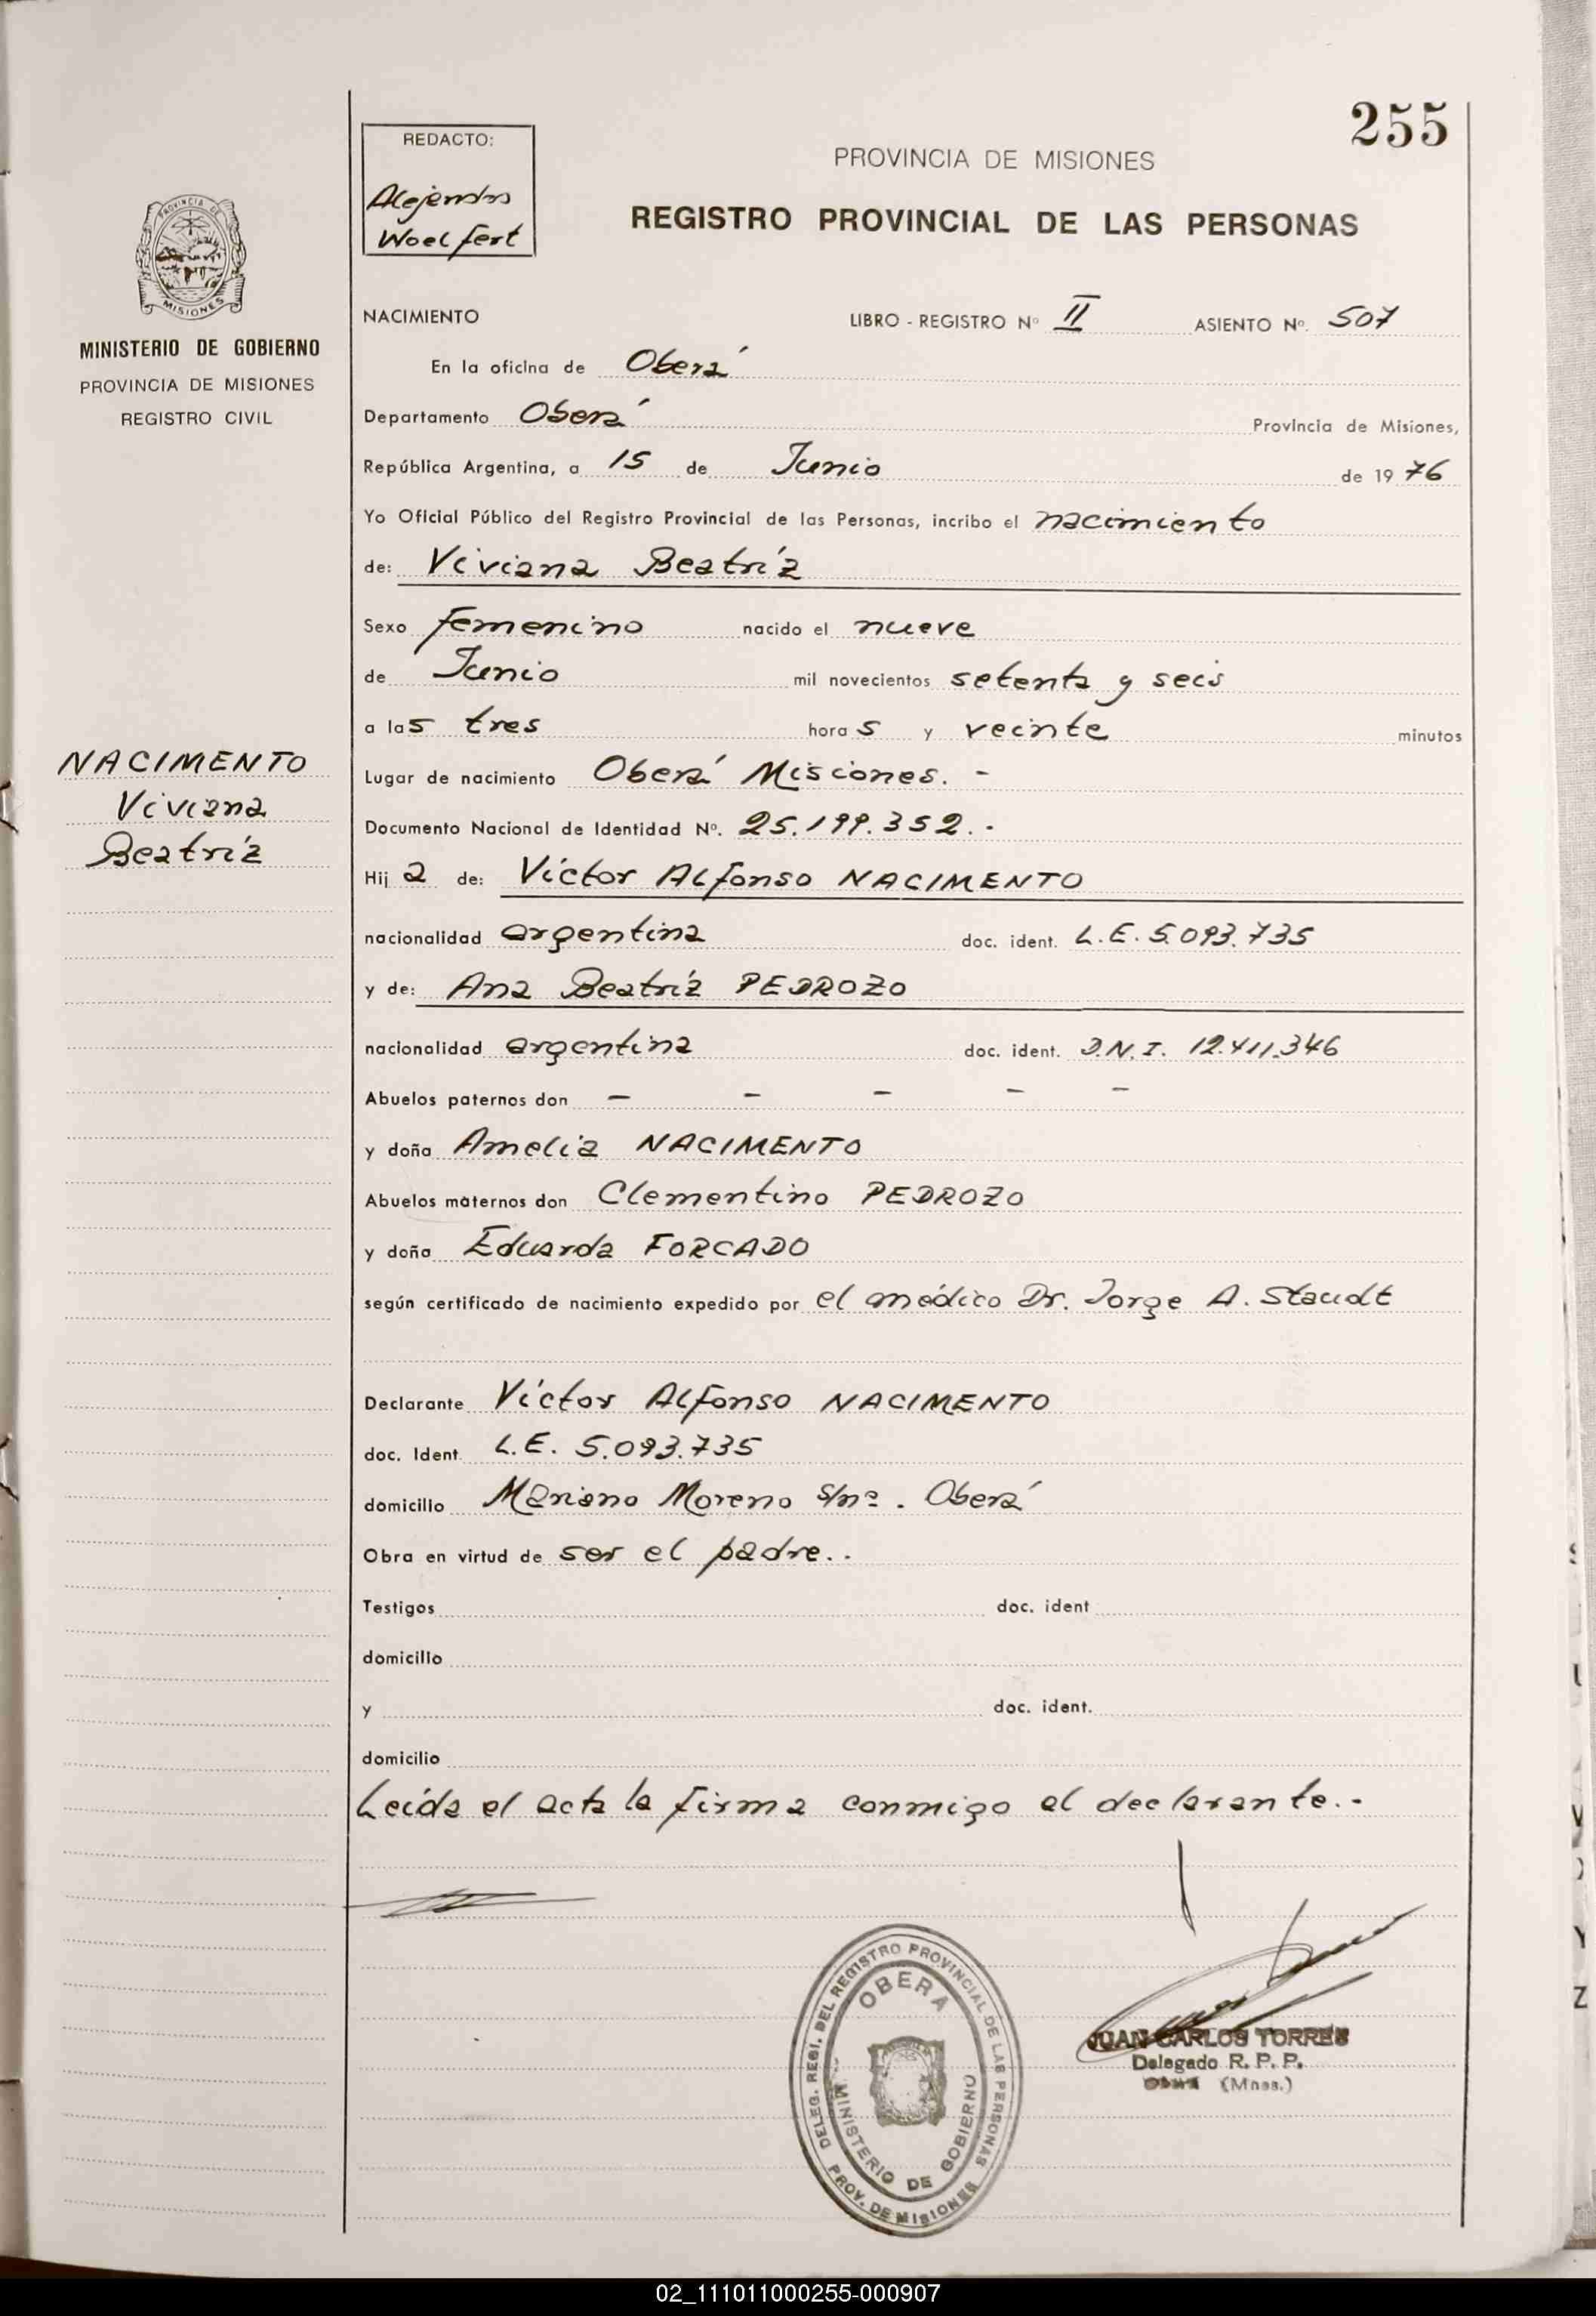 255
REDACTO:
Alejandro
Woelfert
PROVINCIA DE MISIONES
REGISTRO PROVINCIAL DE LAS PERSONAS
PROVINCIA DE
MISIONES
MINISTERIO DE GOBIERNO
PROVINCIA DE MISIONES
REGISTRO CIVIL
NACIMENTO
Viviana
Beatríz
NACIMIENTO LIBRO - REGISTRO Nº II ASIENTO Nº. 507
En la oficina de Oberá
Departamento Oberá Provincia de Misiones,
República Argentina, a 15 de Junio de 1976
Yo Oficial Público del Registro Provincial de las Personas, incribo el nacimiento
de: Viviana Beatríz
Sexo femenino nacido el nueve
de Junio mil novecientos setenta y seis
a las tres horas y veinte minutos
Lugar de nacimiento Oberá Misiones. -
Documento Nacional de Identidad Nº. 25.199.352. -
Hija de: Víctor Alfonso NACIMENTO
nacionalidad argentina doc. ident. L.E. 5.093.735
y de: Ana Beatríz PEDROZO
nacionalidad argentina doc. ident. D.N.I. 12.411.346
Abuelos paternos don - - - - -
y doña Amelia NACIMENTO
Abuelos maternos don Clementino PEDROZO
y doña Eduarda FORCADO
según certificado de nacimiento expedido por el médico Dr. Jorge A. Staudt
Declarante Víctor Alfonso NACIMENTO
doc. Ident. L.E. 5.093.735
domicilio Mariano Moreno s/nº. Oberá
Obra en virtud de ser el padre. .
Testigos doc. ident
domicilio
y doc. ident.
domicilio
Leída el acta la firma conmigo el declarante. -
DELEG. REGI. DEL REGISTRO PROVINCIAL DE LAS PERSONAS
OBERA
MINISTERIO DE GOBIERNO
PROV. DE MISIONES
JUAN CARLOS TORRES
Delegado R. P. P.
(Mnes.)
02_111011000255-000907